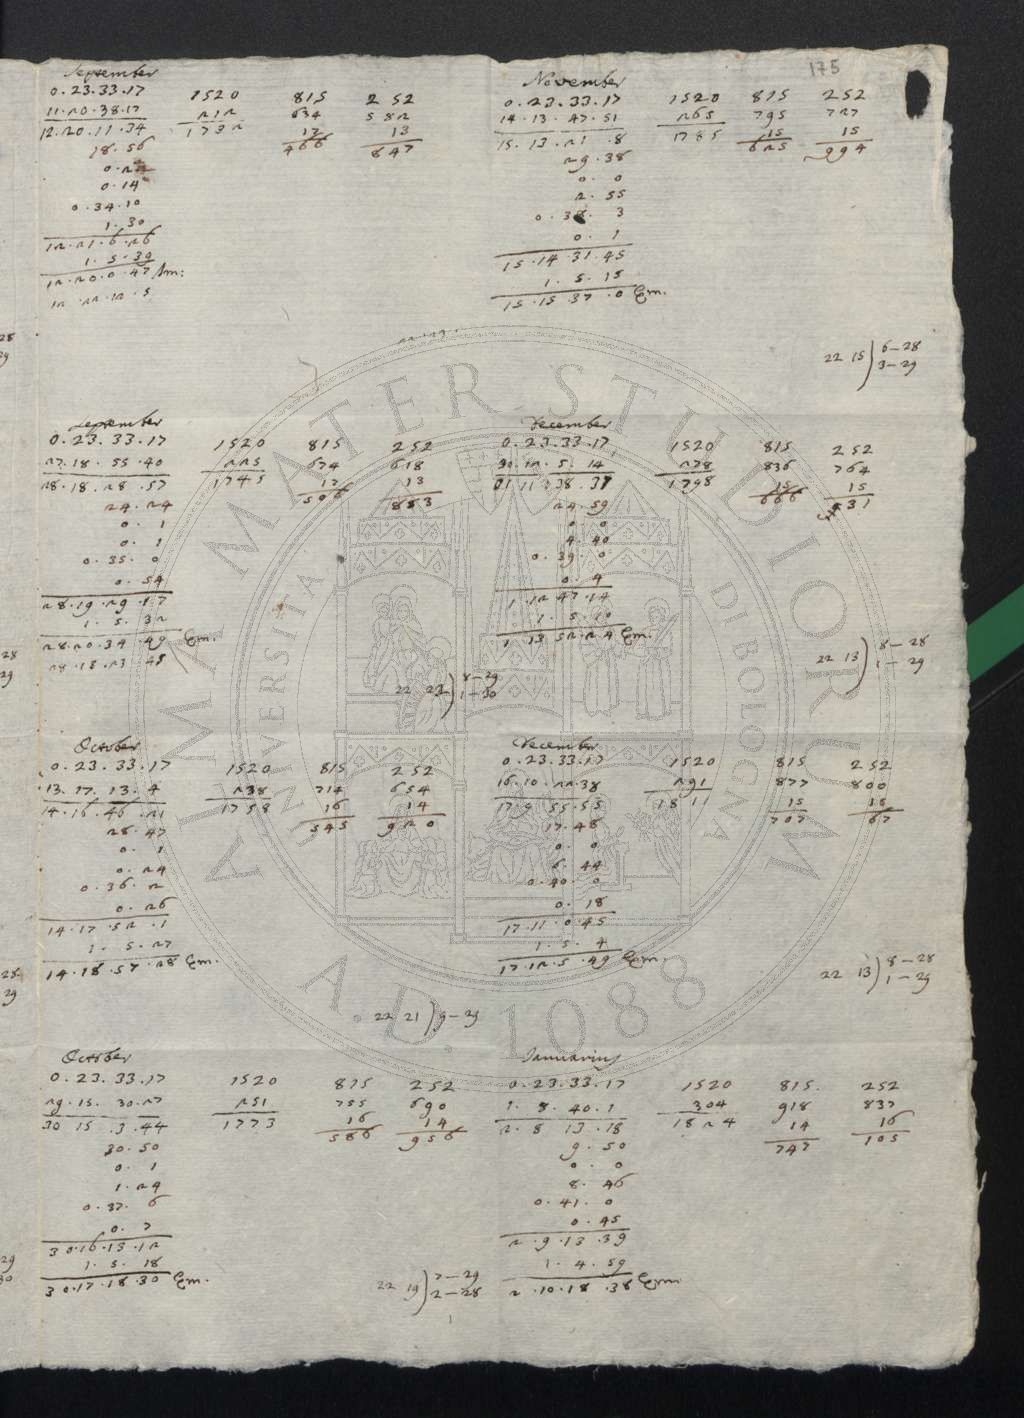 175
September
0.23.33.17 1520 815 252
11.20.38.17 212 634 582
12.20.11.34 1732 17 13
18.56 466 847
0.22
0.14
0.34.10
1.30
12.21.6.26
1.5.39
12.20.0.47 Im:
12.22.12.5
September
0.23.33.17 1520 815 252
27.18.55.40 225 674 618
28.18.28.57 1745 17 13
24.24 506 883
0.1
0.1
0.35.0
0.54
28.19.29.17
1.5.32
28.20.34.49 Em.
28.18.23.45
22 23) 8-29
1-30
October
0.23.33.17 1520 815 252
13.17.13.4 238 714 654
14.16.46.21 1758 16 14
28.47 545 920
0.1
0.24
0.36.2
0.26
14.17.52.1
1.5.27
14.18.57.28 Em.
22 21) 9-29
October
0.23.33.17 1520 815 252
29.15.30.27 251 755 690
30 15.3.44 1773 16 14
30.50 586 956
0.1
1.24
0.37.6
0.7
30.16.13.12
1.5.18
30.17.18.30 Em.
22 19) 7-29
2-28
November
0.23.33.17 1520 815 252
14.13.47.51 265 795 727
15.13.21.8 1785 15 15
29.38 625 994
0.0
2.55
0.38.3
0.1
15.14.31.45
1.5.15
15.15.37.0 Em.
22 15) 6-28
3-29
December
0.23.33.17 1520 815 252
30.12.5.14 278 836 764
01 11.38.31 1798 15 15
24.59 666 31
0 0
4.40
0.39.0
0.4
1.12 47.14
1.5.10
1.13 52.24 Em.
22 13) 8-28
1-29
December
0.23.33.17 1520 815 252
16.10.22.38 291 877 800
17.9 55.55 1811 15 15
17.48 707 67
0.0
6.44
0.40.0
0.18
17.11.0.45
1.5.4
17.12.5.49 Em.
22 13) 8-28
1-29
Januarius
0.23.33.17 1520 815. 252
1.8.40.1 304 918 837
2.8 13.18 1824 14 16
9.50 747 105
0.0
8.46
0.41.0
0.45
2.9.13.39
1.4.59
2.10.18.38 Em
28
29
28
29
28
29
29
30
ALMA MATER STUDIORUM
UNIVERSITÀ DI BOLOGNA
A.D. 1088